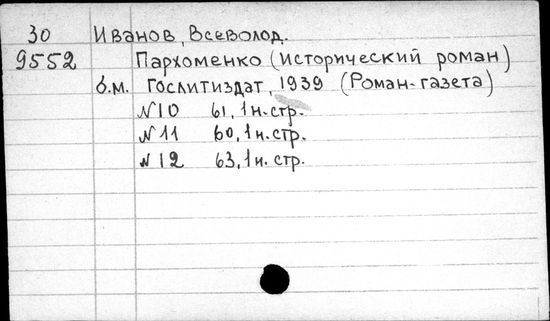 30 Иванов, Всеволод.
9552 Пархоменко (исторический роман)
б.м. Гослитиздат, 1939 (Роман-газета)
№10 61, 1н. стр.
№11 60, 1н. стр.
№12 63, 1н. стр.